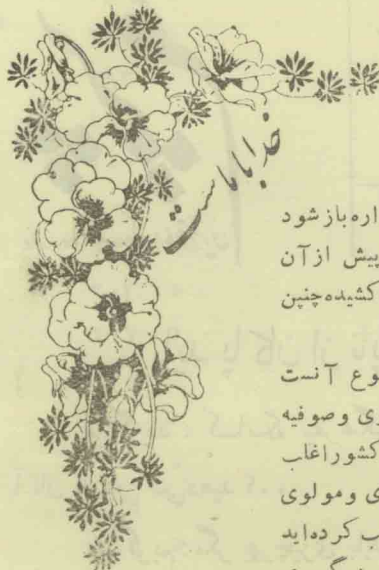 خدا با ماست
اره باز شود
پیش از آن
کشیده چنین
وع آنست
ی و صوفیه
کشور اغلب
ی و مولوی
ب کرده اید